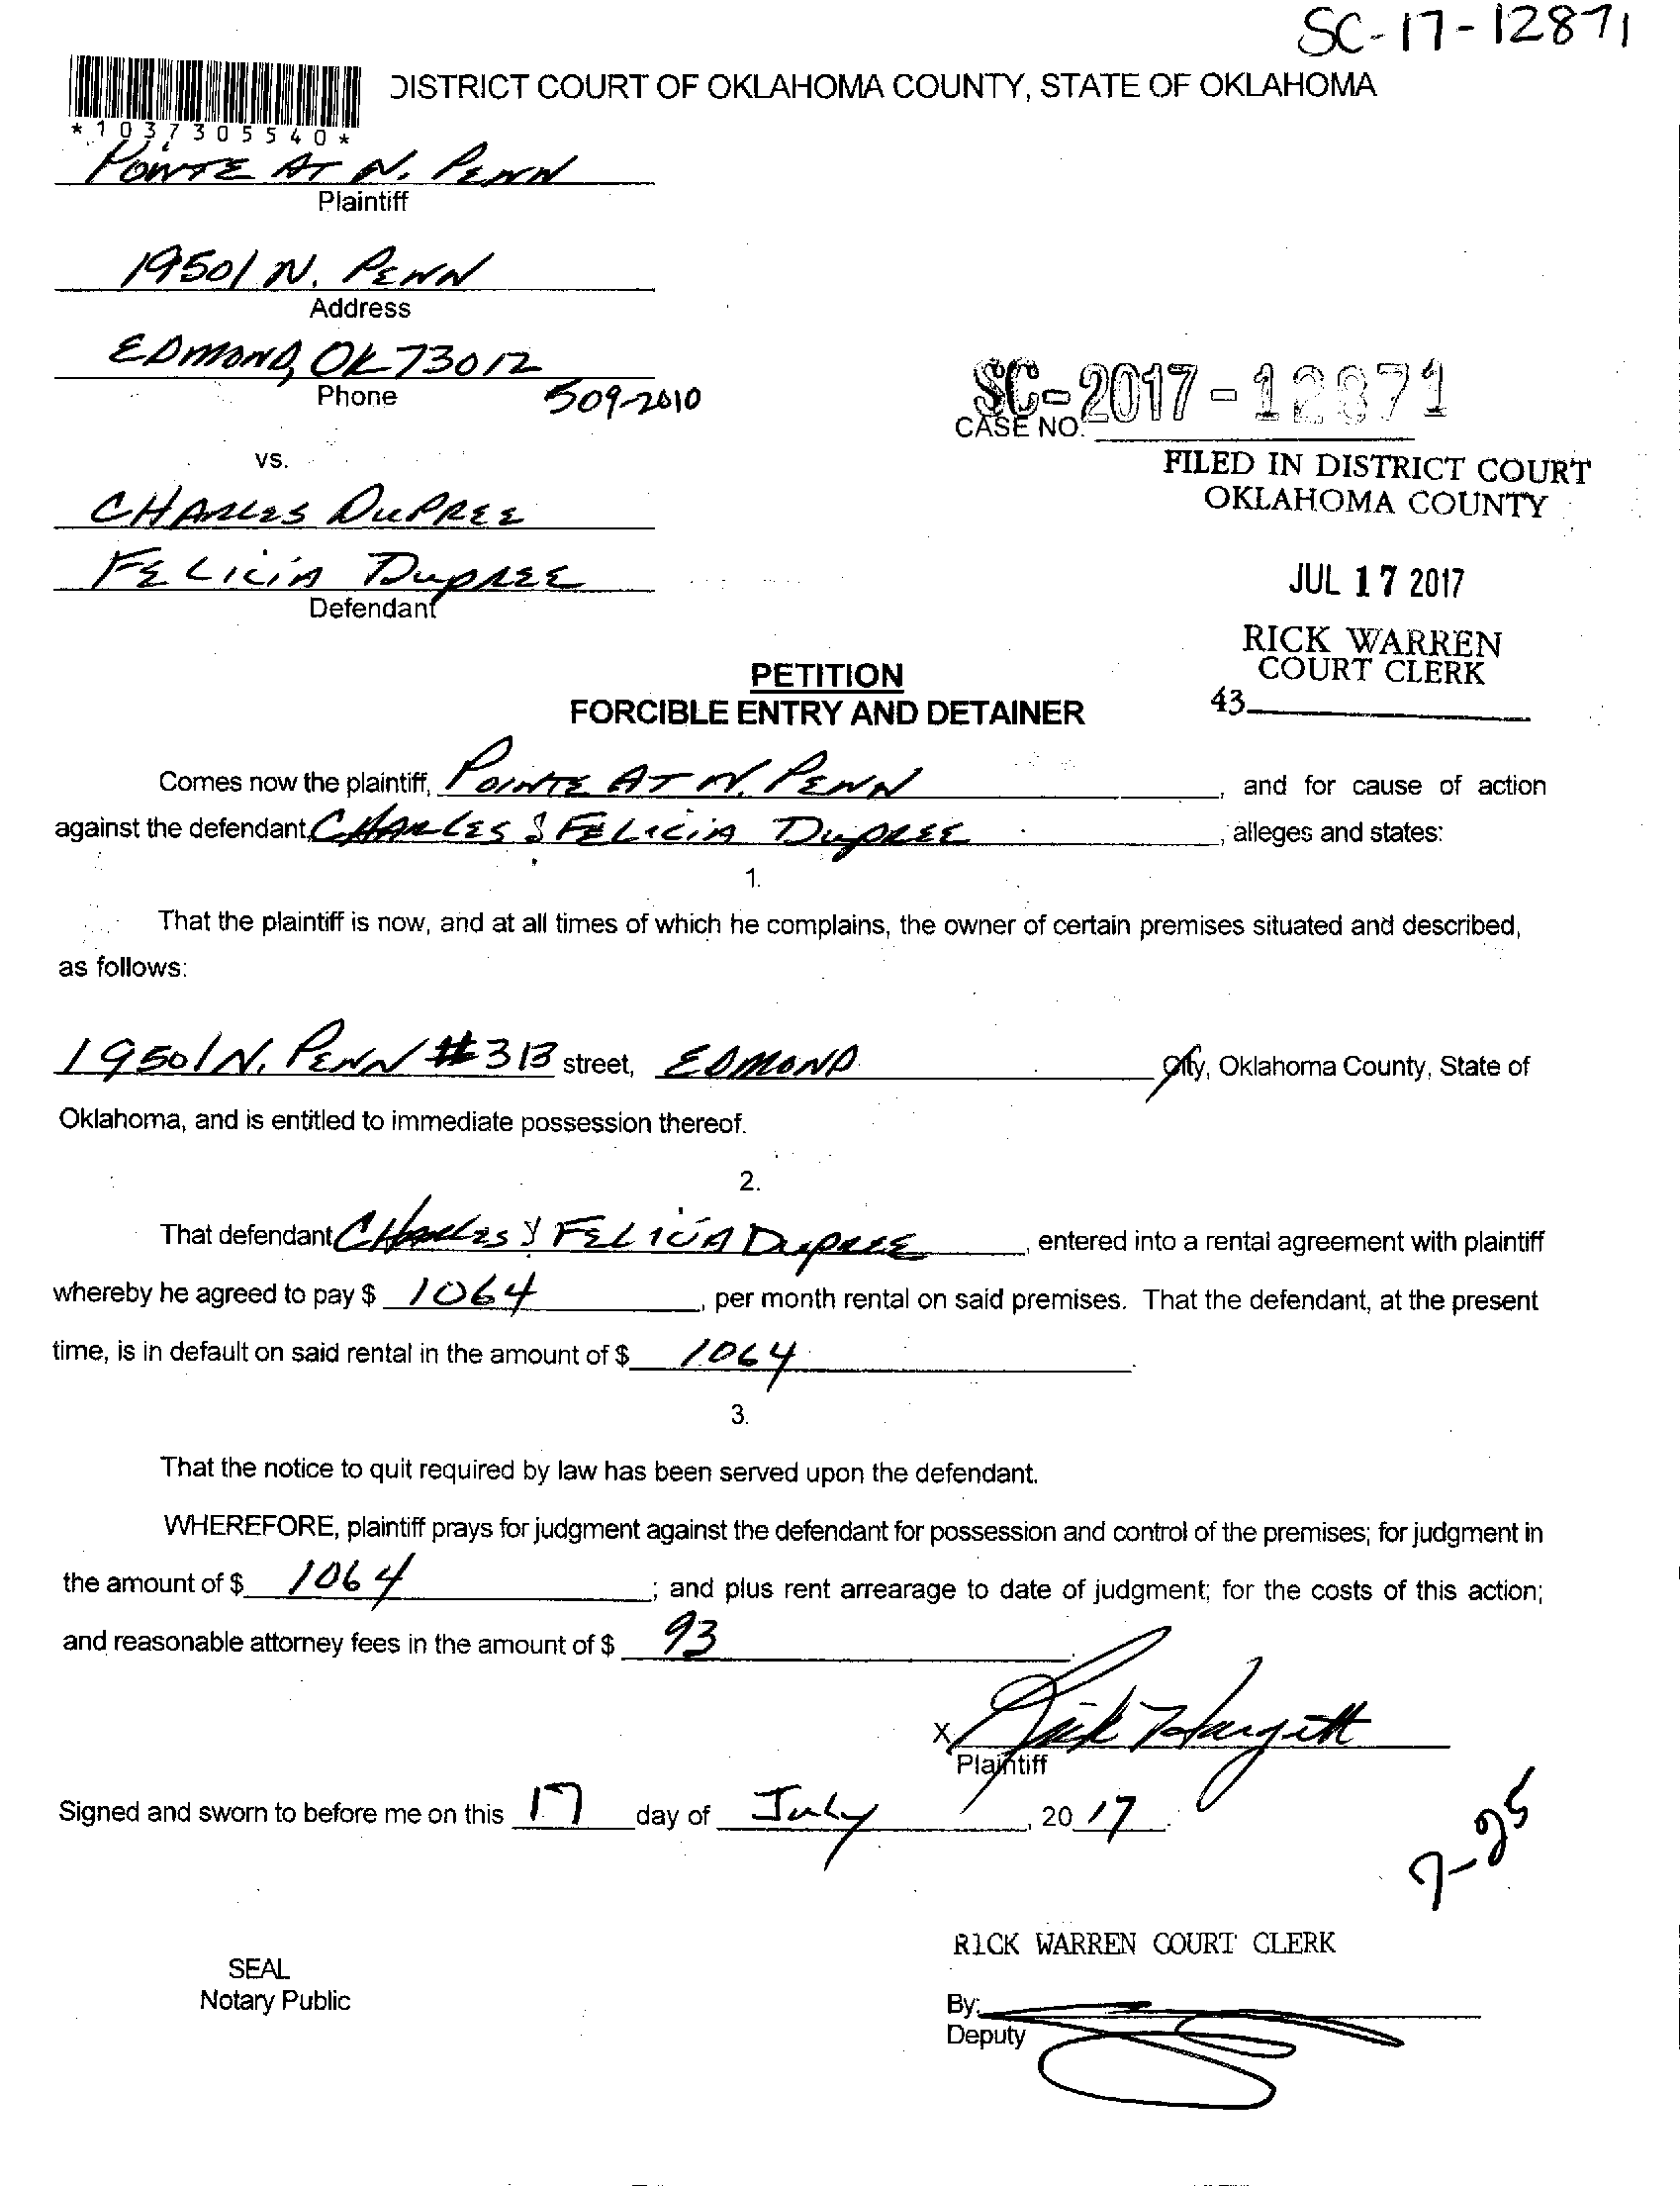 SC-17-12871
DISTRICT COURT OF OKLAHOMA COUNTY, STATE OF OKLAHOMA
*1037305540*
POINTE AT N. PENN
Plaintiff
19501 N. PENN
Address
EDMOND, OK 73012
Phone 509-2010
SC-2017-12871
CASE NO.
vs.
FILED IN DISTRICT COURT
OKLAHOMA COUNTY
CHARLES DUPREE
FELICIA DUPREE
Defendant
JUL 17 2017
RICK WARREN
COURT CLERK
43
PETITION
FORCIBLE ENTRY AND DETAINER
Comes now the plaintiff, POINTE AT N. PENN, and for cause of action
against the defendant, CHARLES & FELICIA DUPREE, alleges and states:
1.
That the plaintiff is now, and at all times of which he complains, the owner of certain premises situated and described,
as follows:
19501 N. PENN #313 street, EDMOND City, Oklahoma County, State of
Oklahoma, and is entitled to immediate possession thereof.
2.
That defendant CHARLES & FELICIA DUPREE, entered into a rental agreement with plaintiff
whereby he agreed to pay $ 1064, per month rental on said premises. That the defendant, at the present
time, is in default on said rental in the amount of $ 1064.
3.
That the notice to quit required by law has been served upon the defendant.
WHEREFORE, plaintiff prays for judgment against the defendant for possession and control of the premises; for judgment in
the amount of $ 1064; and plus rent arrearage to date of judgment; for the costs of this action;
and reasonable attorney fees in the amount of $ 93.
X Rick Hargett
Plaintiff
Signed and sworn to before me on this 17 day of July, 20 17.
7-25
RICK WARREN COURT CLERK
SEAL
Notary Public
By:
Deputy